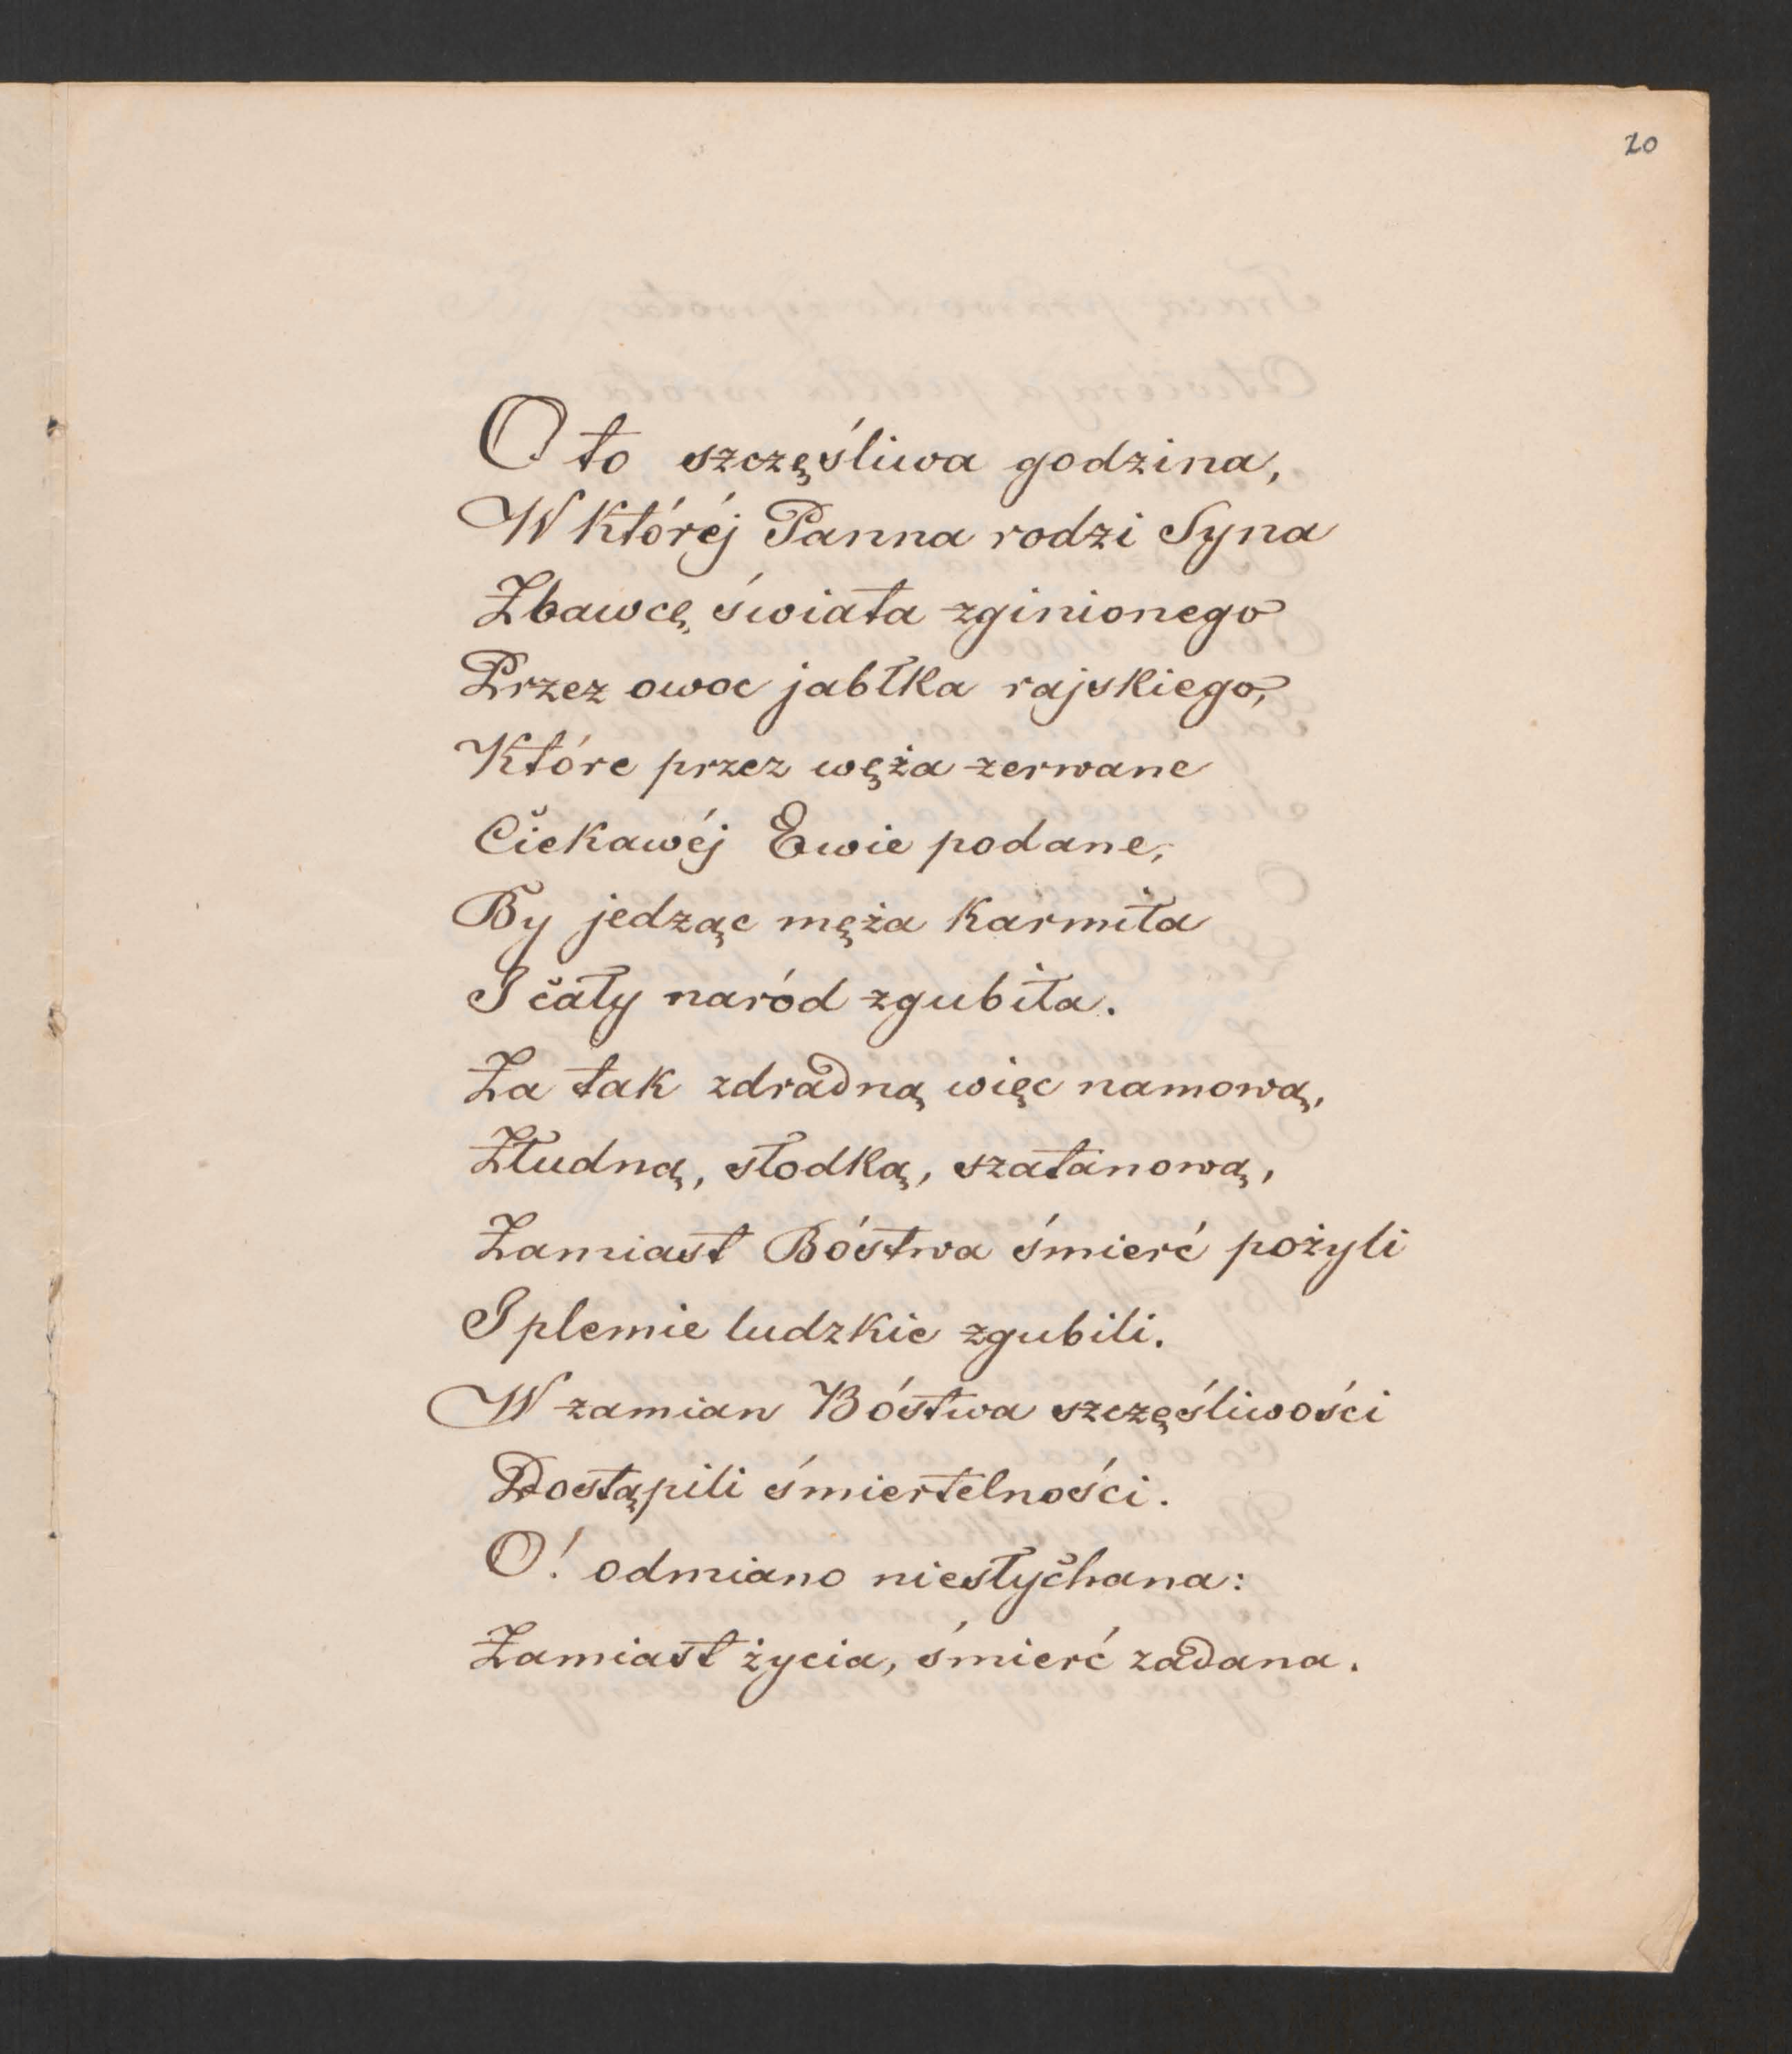 20
Oto szczęśliwa godzina,
W któréj Panna rodzi Syna
Zbawcę świata zginionego
Przez owoc jabłka rajskiego,
Które przez węża zerwane
Ciekawéj Ewie podane,
By jedząc męża karmiła
I cały naród zgubiła.
Za tak zdradną więc namową,
Złudną, słodką, szatanową,
Zamiast Bóstwa śmierć pożyli
I plemie ludzkie zgubili.
W zamian Bóstwa szczęśliwości
Dostąpili śmiertelności.
O! odmiano niesłychana:
Zamiast życia, śmierć zadana.